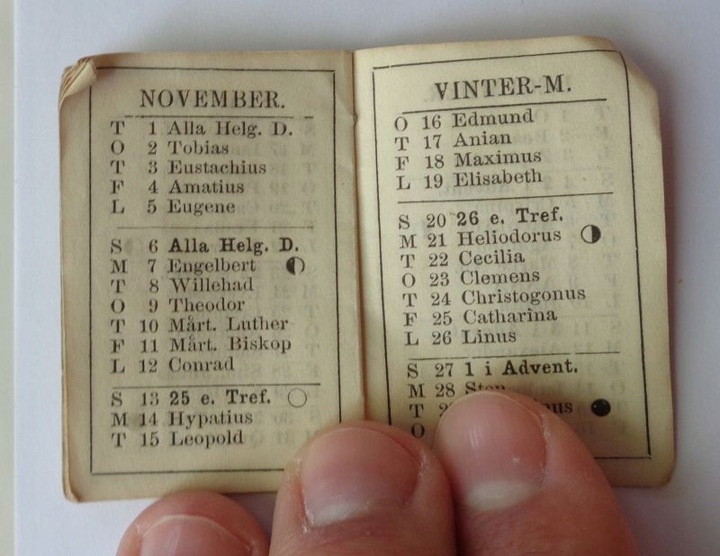 NOVEMBER.
T 1 Alla Helg. D.
O 2 Tobias
T 3 Eustachius
F 4 Amatius
L 5 Eugene
S 6 Alla Helg. D.
M 7 Engelbert
T 8 Willehad
O 9 Theodor
T 10 Mårt. Luther
F 11 Mårt. Biskop
L 12 Conrad
S 13 25 e. Tref.
M 14 Hypatius
T 15 Leopold
VINTER-M.
O 16 Edmund
T 17 Anian
F 18 Maximus
L 19 Elisabeth
S 20 26 e. Tref.
M 21 Heliodorus
T 22 Cecilia
O 23 Clemens
T 24 Christogonus
F 25 Catharina
L 26 Linus
S 27 1 i Advent.
M 28
T
O